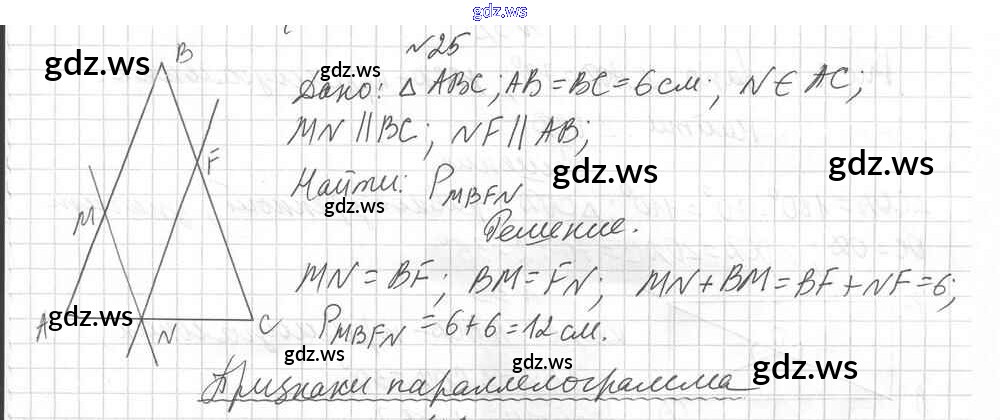 gdz.ws
№25
gdz.ws
gdz.ws
B
Дано: △ABC; AB=BC=6см; N∈AC;
MN||BC; NF||AB;
gdz.ws
gdz.ws
F
Найти: P_MBFN
gdz.ws
M
Решение.
MN=BF; BM=FN; MN+BM=BF+NF=6;
A
gdz.ws
N
C
P_MBFN=6+6=12см.
gdz.ws
gdz.ws
gdz.ws
Признаки параллелограмма